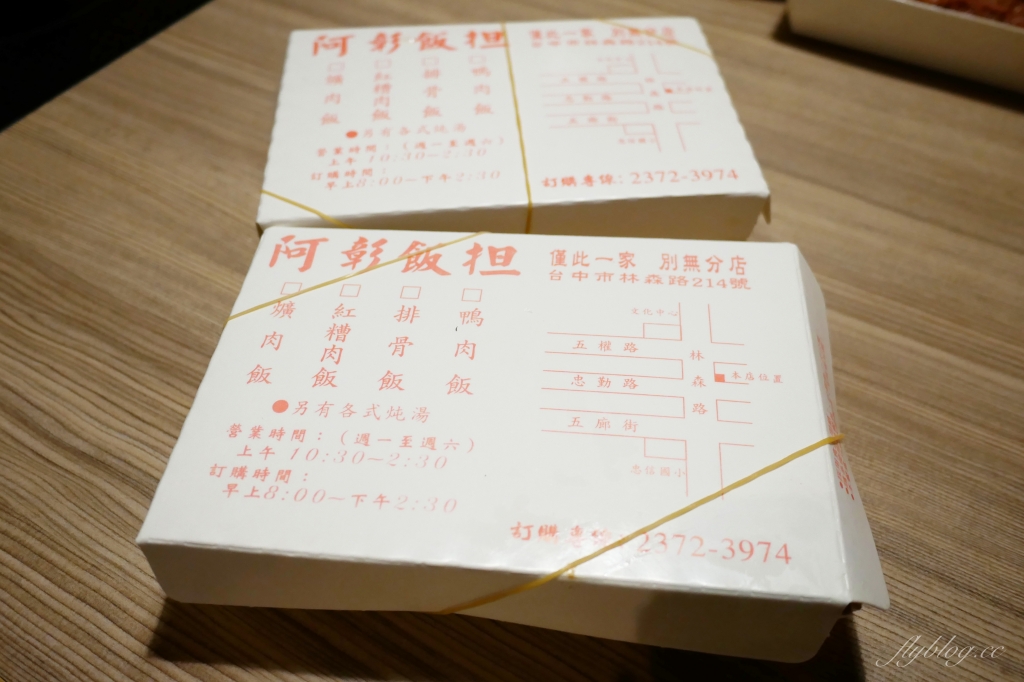 阿彰飯担
僅此一家 別無分店
台中市林森路214號
□爌肉飯 □紅糟肉飯 □排骨飯 □鴨肉飯
●另有各式炖湯
營業時間：(週一至週六)
上午 10:30－2:30
訂購時間：
早上8:00～下午2:30
五權路
林森路
五廊街
訂購專線: 2372-3974
阿彰飯担
僅此一家 別無分店
台中市林森路214號
□爌肉飯 □紅糟肉飯 □排骨飯 □鴨肉飯
●另有各式炖湯
營業時間：(週一至週六)
上午 10:30－2:30
訂購時間：
早上8:00～下午2:30
文化中心
五權路
林森路
本店位置
忠勤路
五廊街
忠信國小
訂購專線: 2372-3974
flyblog.cc